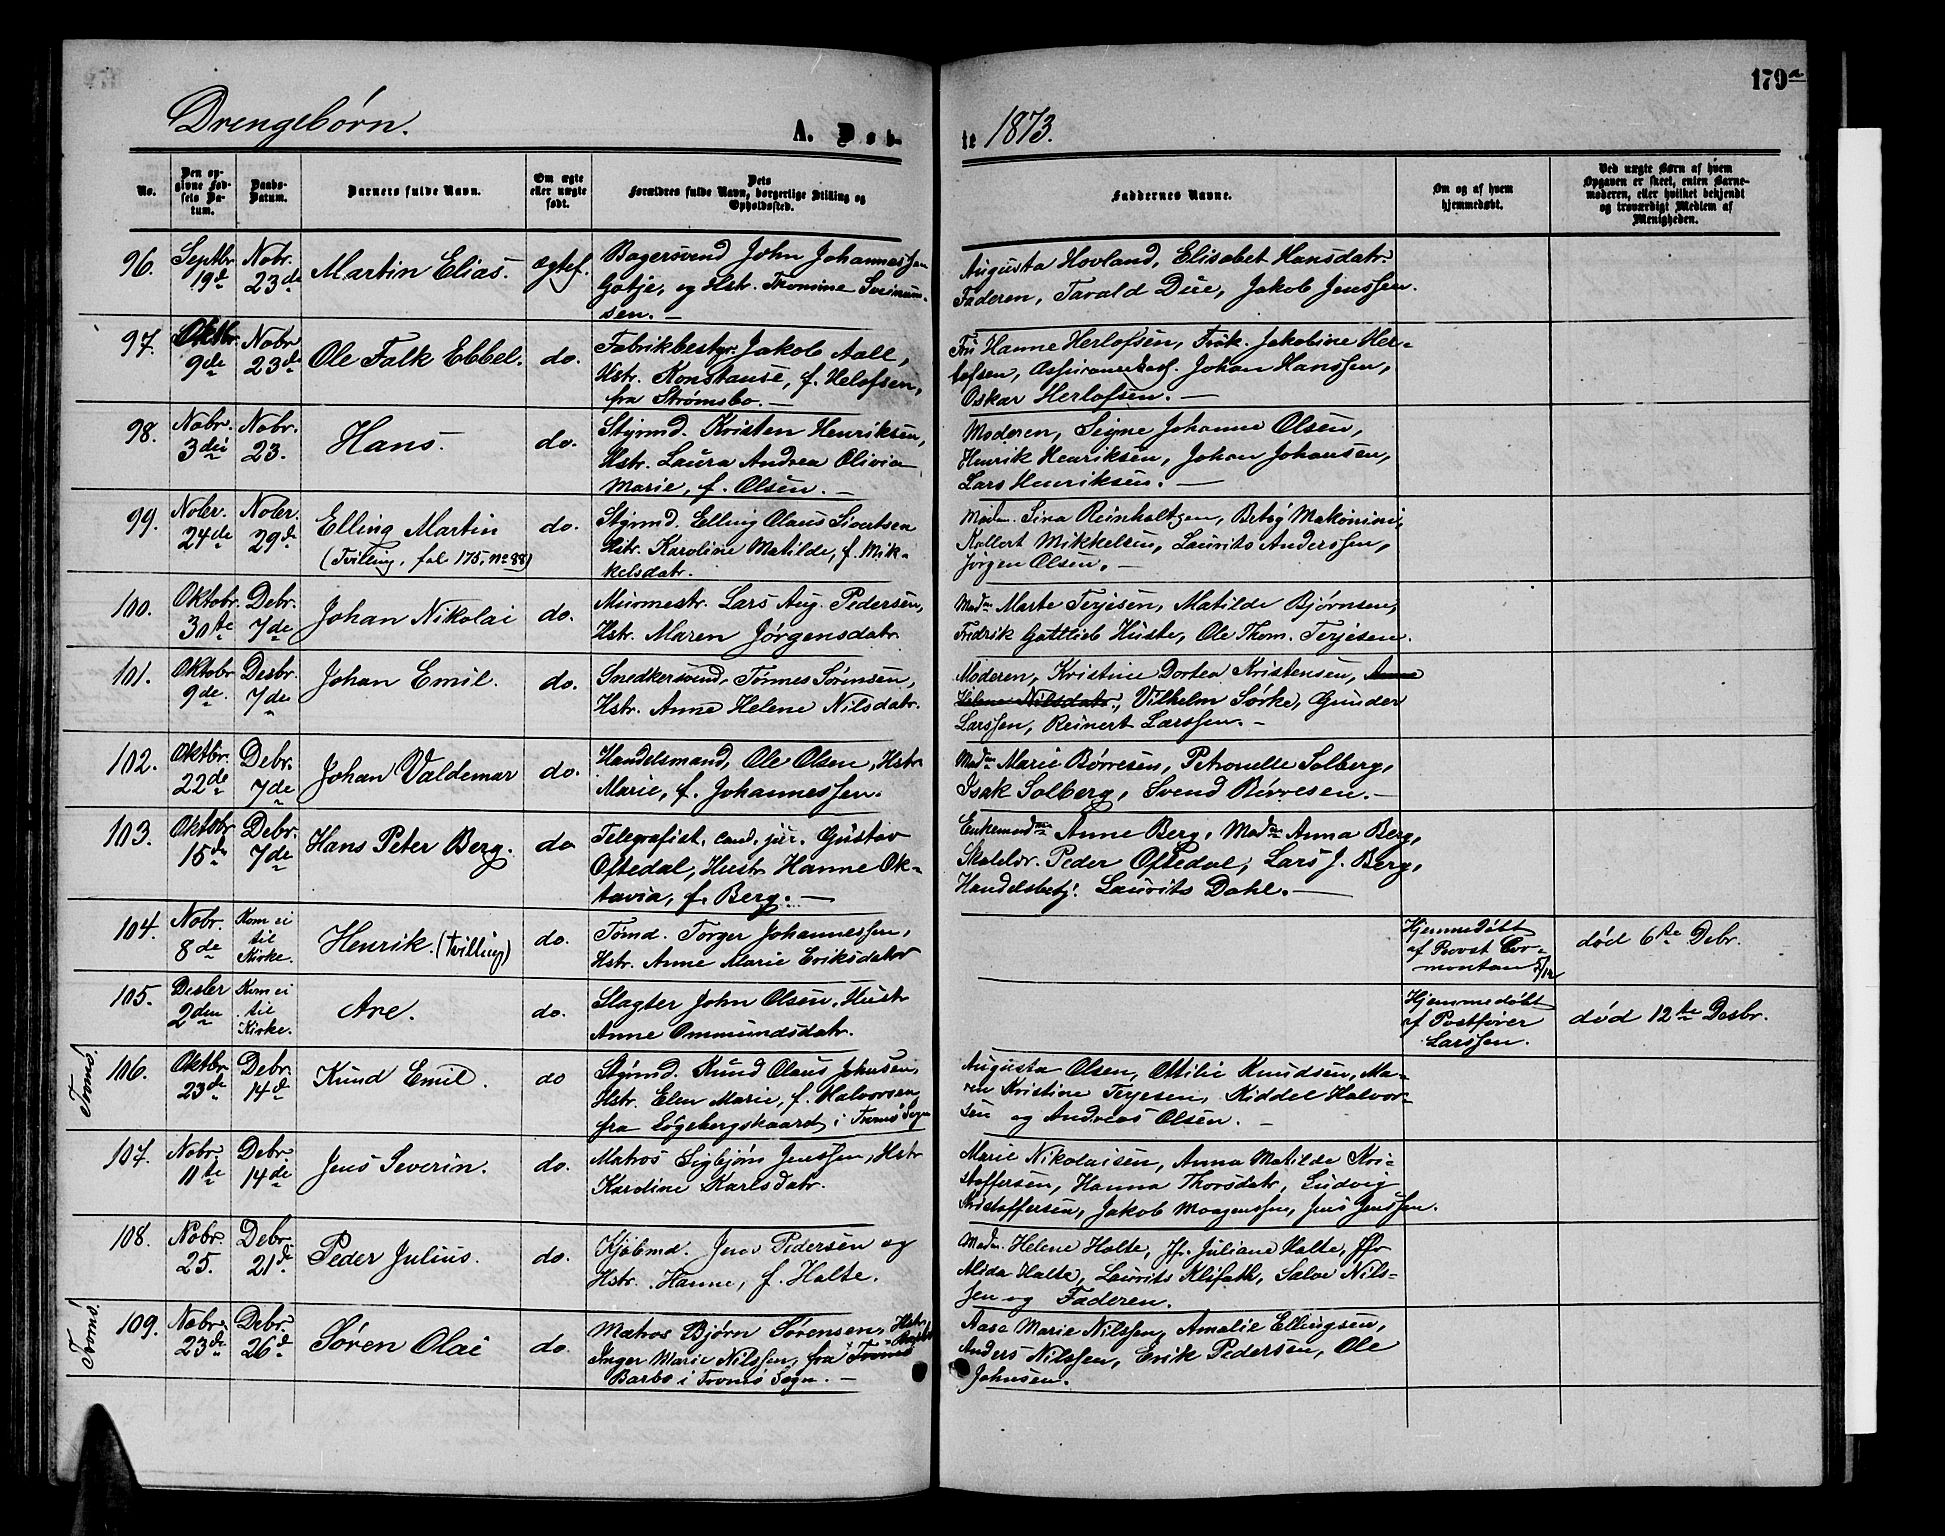 179a
Drengebørn.
A. Døb-
te 1873.
No.
Den op-
givne Fød-
sels Da-
tum.
Daabs-
Datum.
Barnets fulde Navn.
Om ægte
eller uægte
født.
Dets
Forældres fulde Navn, borgerlige Stilling og
Opholdssted.
Faddernes Navne.
Om og af hvem
hjemmedøbt.
Ved uægte Børn af hvem
Opgaven er skeet, enten Barne-
moderen, eller hvilket bekjendt
og troværdigt Medlem af
Menigheden.
96. Septbr. 19de Nobr. 23de Martin Elias. ægtef.
Bagersvend John Johannessen
Gotje, og Hstr. Tromine Sveinum-
sen. —
Augusta Hovland, Elisabet Hansdatr.
Faderen, Tarald Due, Jakob Jenssen.
97. Oktbr. 9de Nobr. 23de Ole Falk Ebbel. do.
Fabrikbestyr. Jakob Aall,
Hstr. Konstanse, f. Helofsen,
fra Strømsbo. —
Fru Hanne Herlofsen, Frøk. Jakobine Her-
lofsen, Johan Hanssen,
Oskar Herlofsen. —
98. Nobr. 3die Nobr. 23. Hans. do.
Styrmd. Kristen Henriksen,
Hstr. Laura Andrea Olivia
Marie, f. Olsen. —
Moderen, Signe Johanne Olsen,
Henrik Henriksen, Johan Johansen,
Lars Henriksen. —
99. Nobr. 24de Nobr. 29de Elling Martin do.
(Tvilling, fol. 175, No 88)
Styrmd. Elling Olaus Sivertsen
Hstr. Karoline Matilde, f. Mik-
kelsdatr.
Madm. Sina Reinholtzen, Betsy Makonini,
Kallert Mikkelsen, Laurits Anderssen,
Jørgen Olsen. —
100. Oktobr. 30te Debr. 7de Johan Nikolai do.
Murmestr. Lars Aug. Pedersen,
Hstr. Maren Jørgensdatr.
Madm Marte Terjesen, Matilde Bjørnsen,
Fredrik Gottlieb Huste, Ole Thom. Terjesen.
101. Oktobr 9de. Desbr. 7de Johan Emil. do.
Snedkersvend, Tørnes Sørensen,
Hstr. Anne Helene Nilsdatr.
Moderen, Kristine Dortea Kristensen, Anne
Helene Nilsdatr., Vilhelm Sørke, Gunder
Larssen, Reinert Larssen. —
102. Oktbr. 22de Debr. 7de Johan Valdemar do.
Handelsmand, Ole Olsen, Hstr.
Marie, f. Johannessen.
Madm Marie Børresen, Petronelle Solberg,
Isak Solberg, Svend Børresen. —
103. Oktobr 15de Debr. 7de Hans Peter Berg. do
Telegrafist, cand. jur. Gustav
Oftedal, Hustr Hanne Ok-
tavia, f. Berg. —
Enkemadm Anne Berg, Madm Anna Berg,
Skolelr. Peder Oftedal, Lars J. Berg,
Handelsbetj. Laurits Dahl. —
104. Nobr. 8de Kom ei til Kirke. Henrik. (Tvilling) do.
Tømd. Torger Johannessen,
Hstr. Anne Marie Eriksdatr
Hjemmedøbt
af Provst Cor-
montan 5/12
død 6te Debr.
105. Desbr 2den Kom ei til Kirke. Are. do.
Slagter John Olsen, Hustr
Anne Ommundsdatr.
Hjemmedøbt
af Postfører
Larssen.
død 12te Desbr.
Tromø.
106. Oktbr. 23de Debr. 14d Knud Emil. do
Styrmd. Knud Olaus Johnsen,
Hstr. Elen Marie, f. Halvorsen
fra Løgebergskaard i Tromø Sogn
Augusta Olsen, Ottilie Knudsen, Ma-
ren Kristine Terjesen, Kiddel Halvor-
sen og Andreas Olsen. —
107. Nobr 11te Debr 14de Jens Severin. do.
Matros Sigbjørn Jenssen, Hstr
Karoline Karlsdatr.
Marie Nikolaisen, Anna Matilde Kri-
stoffersen, Hanna Thorsdatr, Ludvig
Kristoffersen, Jakob Moogenssen, Jens Jenssen.
108. Nobr. 25. Debr. 21de. Peder Julius. do.
Kjøbmd. Jens Pedersen og
Hstr. Hanne, f. Holte.
Madm. Helene Holte, Jfr. Juliane Holte, Jfr
Alida Holte, Laurits Klifath, Salve Nils-
sen og Faderen.
Tromø.
109. Nobr. 23de Debr. 26d Søren Olai do.
Matros Bjørn Sørensen, Hstr.
Inger Marie Nilssen, fra Tromø
Barbo i Tromø Sogn. —
Aase Marie Nilssen, Amalie Ellingsen,
Anders Nilssen, Erik Pedersen, Ole
Johnsen.